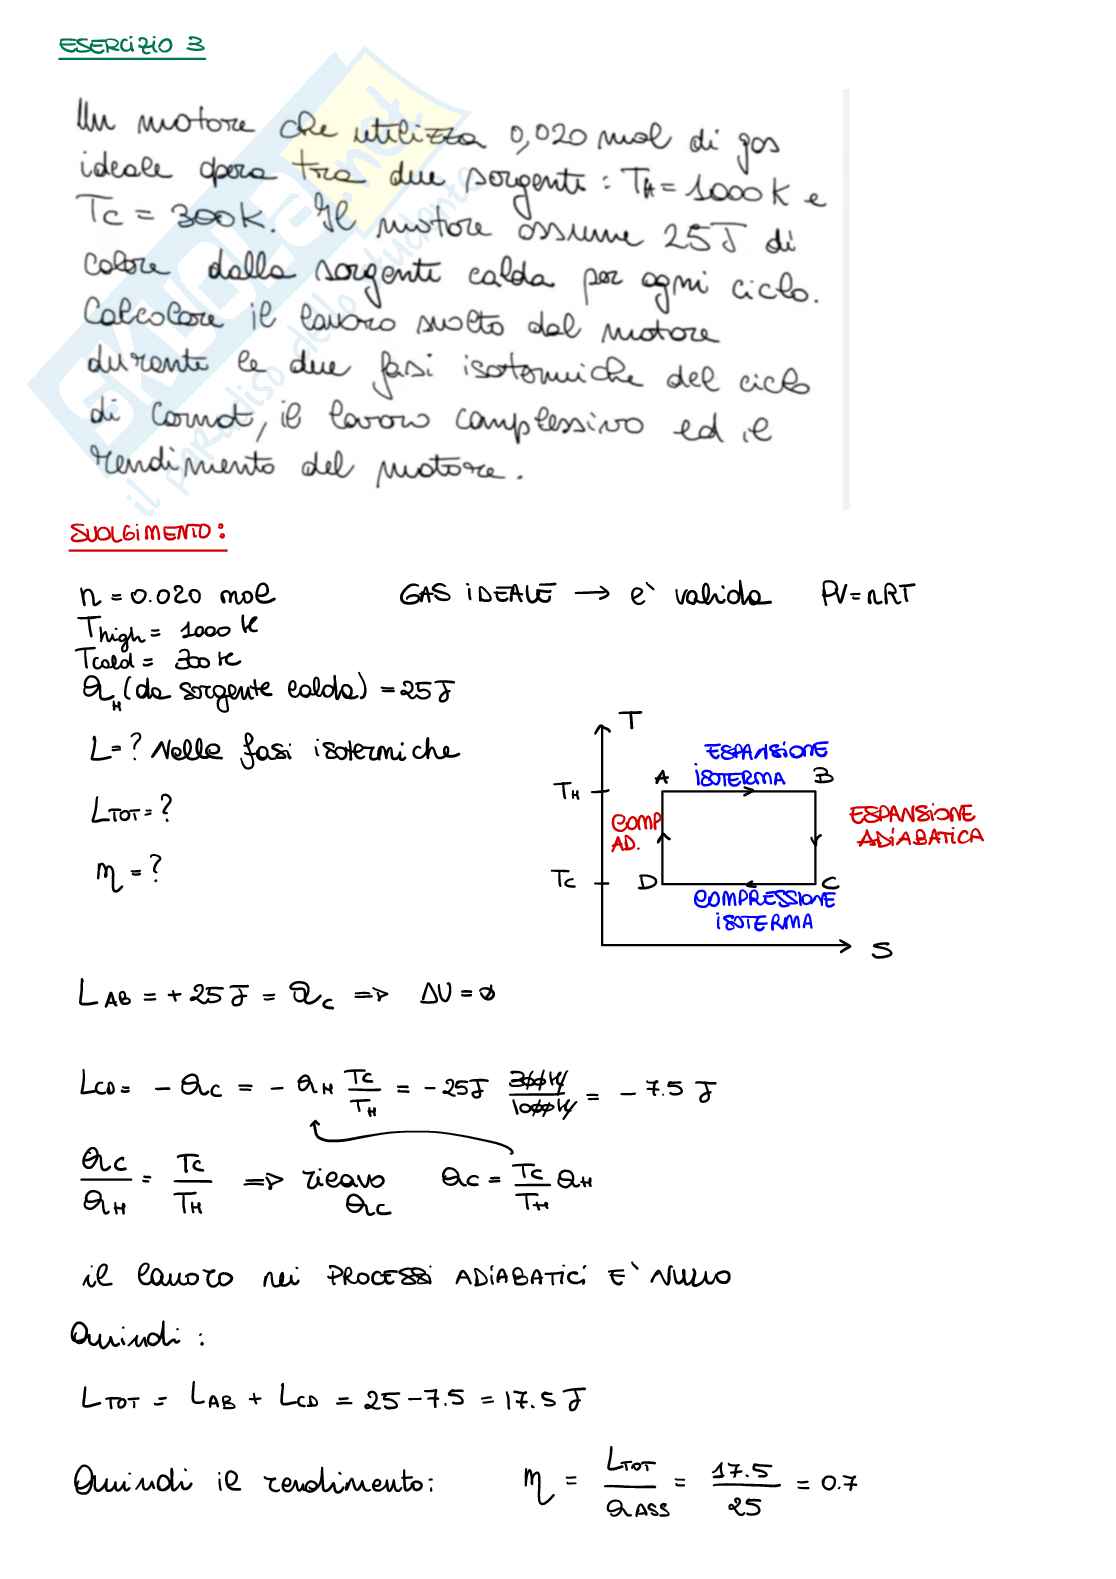 ESERCIZIO 3
Un motore che utilizza 0,020 mol di gas
ideale opera tra due sorgenti: TH = 1000 K e
TC = 300K. Il motore assume 25J di
calore dalla sorgente calda per ogni ciclo.
Calcolare il lavoro svolto dal motore
durante le due fasi isotermiche del ciclo
di Carnot, il lavoro complessivo ed il
rendimento del motore.
SKUOLA.net
il paradiso dello studente
SVOLGIMENTO:
n = 0.020 mol GAS IDEALE → e' valida PV=nRT
Thigh = 1000 K
Tcold = 300 K
QH (da sorgente calda) = 25 J
L = ? Nelle fasi isotermiche
LTOT = ?
η = ?
T
ESPANSIONE
ISOTERMA
A
B
TH
COMP
AD.
ESPANSIONE
ADIABATICA
TC
D
C
COMPRESSIONE
ISOTERMA
S
LAB = + 25 J = QC => ΔU = ∅
LCD = - QC = - QH TC/TH = - 25J 300K/1000K = - 7.5 J
QC/QH = TC/TH => ricavo QC QC = TC/TH QH
il lavoro nei PROCESSI ADIABATICI E' NULLO
Quindi:
LTOT = LAB + LCD = 25 - 7.5 = 17.5 J
Quindi il rendimento: η = LTOT/QASS = 17.5/25 = 0.7